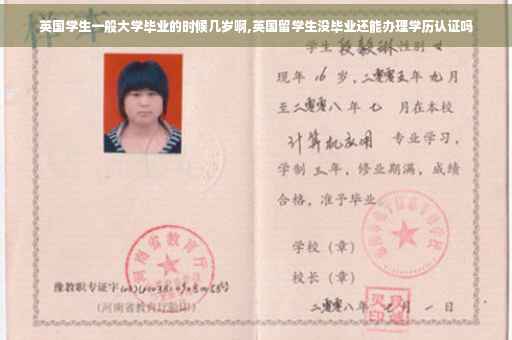 英国学生一般大学毕业的时候几岁啊,英国留学生没毕业还能办理学历认证吗
学生 段毅琳 性别 女
现年 16 岁，二零零五年 九月
至二零零八年 七 月在本校
计算机应用 专业学习，
学制 三年，修业期满，成绩
合格，准予毕业
学校（章）
校长（章）
二零零八年 月 一 日
河南省教育厅
豫教职专证字
(河南省教育厅验印)